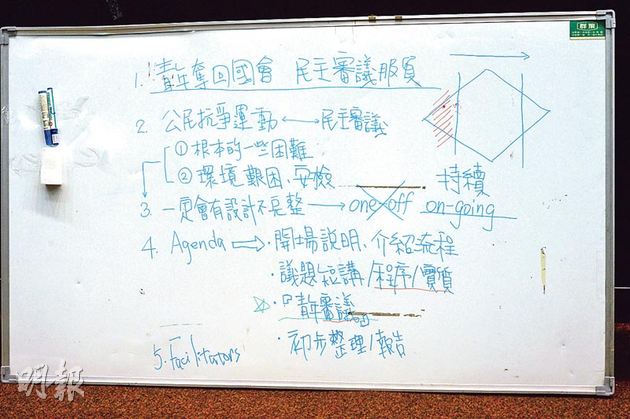 1. 青年奪回國會 民主審議服貿
2. 公民抗爭運動 ↔ 民主審議
① 根本的一些困難
② 環境艱困、安檢
持續
3. 一定會有設計不完整 → one off on-going
4. Agenda ⇒ ・開場說明、介紹流程
・議題短講/程序/實質
☆・『青年審議』
・初步整理/報告
5. Facilitators
明報
群業